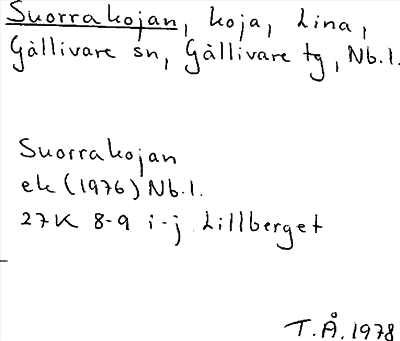 Suorrakojan, koja, Lina,
Gällivare sn, Gällivare tg, Nb.l.
Suorrakojan
ek (1976) Nb.l.
27K 8-9 i-j Lillberget
T.Å. 1978